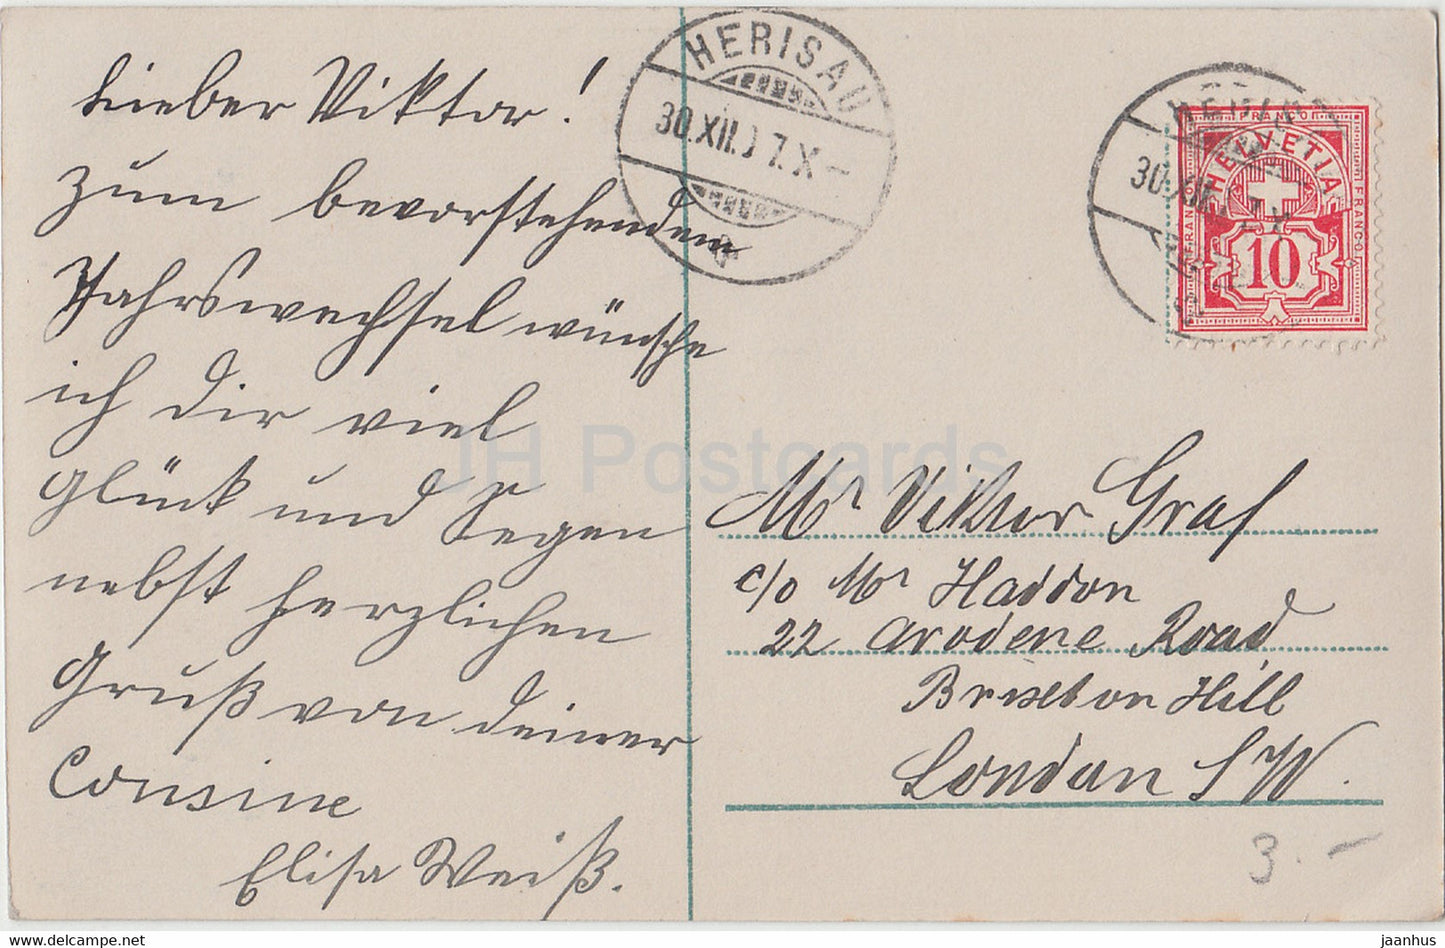 Lieber Viktor!
zum bevorstehenden
Jahrswechsel wünsche
ich dir viel
Glück und Segen
nebst herzlichen
Gruß von deiner
Cousine
Elisa Weiß.
HERISAU
30.XII.07.X–
HERISAU
30.XII.07.X
FRANCO
HELVETIA
FRANCO
FRANCO
10
JH Postcards
Mr Viktor Graf
c/o Mr Haddon
22 Arodene Road
Brixton Hill
London SW.
3.–
jaanhus @ delcampe.net